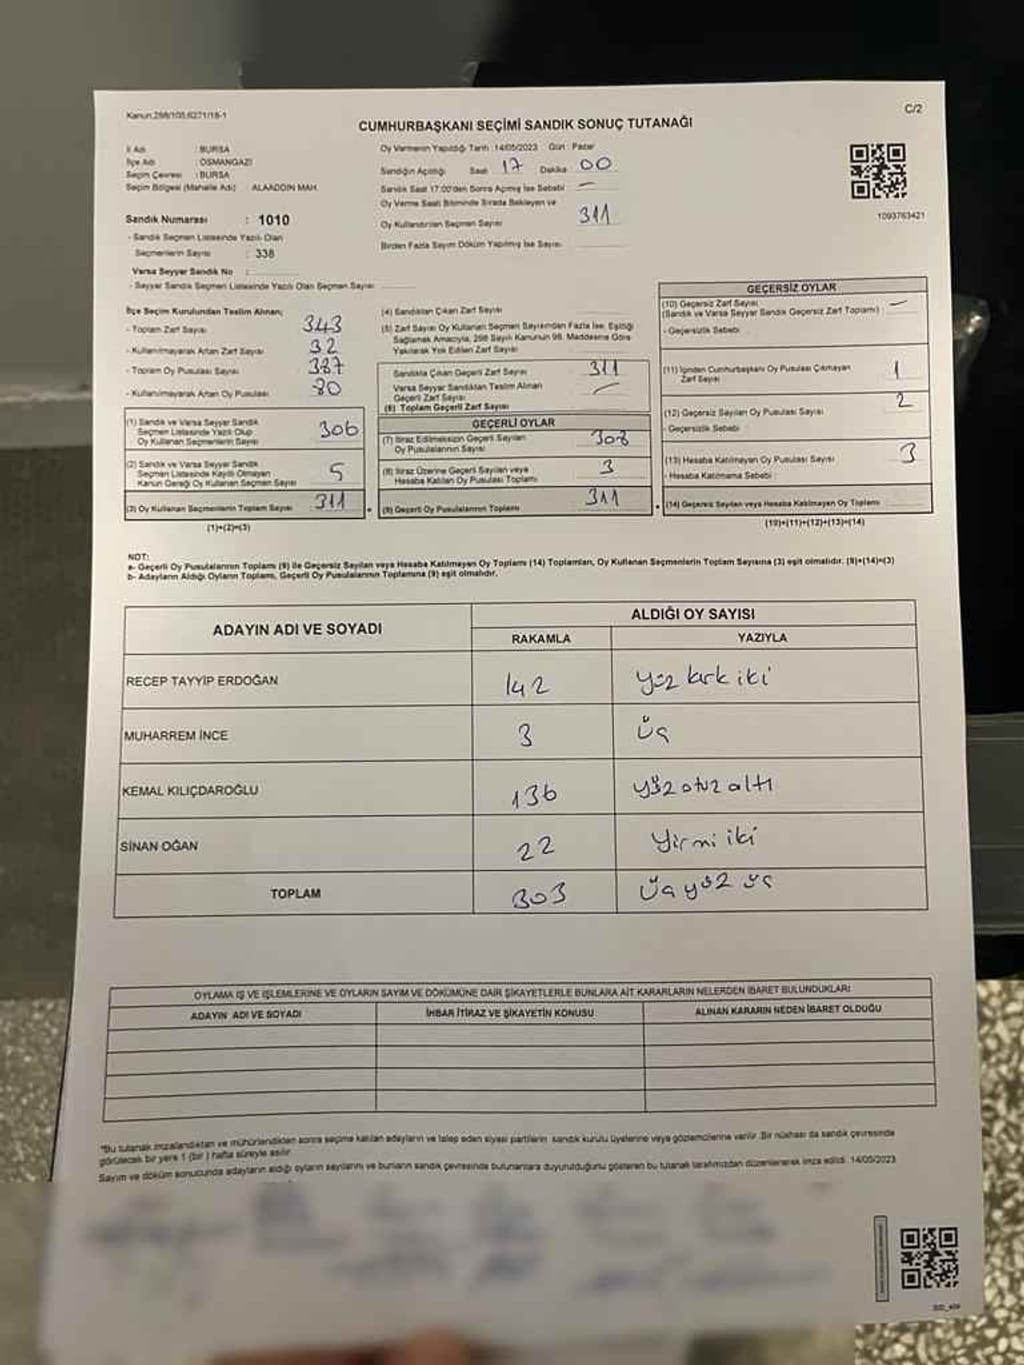 Kanun:298/105,6271/18-1
C/2
CUMHURBAŞKANI SEÇİMİ SANDIK SONUÇ TUTANAĞI
İl Adı : BURSA
İlçe Adı : OSMANGAZİ
Seçim Çevresi : BURSA
Seçim Bölgesi (Mahalle Adı) : ALAADDİN MAH.
Sandık Numarası : 1010
- Sandık Seçmen Listesinde Yazılı Olan
Seçmenlerin Sayısı : 338
Varsa Seyyar Sandık No :
- Seyyar Sandık Seçmen Listesinde Yazılı Olan Seçmen Sayısı:
Oy Vermenin Yapıldığı Tarih :14/05/2023 Gün : Pazar
Sandığın Açıldığı Saat 17 Dakika 00
Sandık Saat 17:00'den Sonra Açılmış İse Sebebi : —
Oy Verme Saati Bitiminde Sırada Bekleyen ve
Oy Kullandırılan Seçmen Sayısı 311
Birden Fazla Sayım Döküm Yapılmış İse Sayısı:
1093763421
İlçe Seçim Kurulundan Teslim Alınan;
- Toplam Zarf Sayısı 343
- Kullanılmayarak Artan Zarf Sayısı 32
- Toplam Oy Pusulası Sayısı
- Kullanılmayarak Artan Oy Pusulası 80
(1) Sandık ve Varsa Seyyar Sandık
Seçmen Listesinde Yazılı Olup
Oy Kullanan Seçmenlerin Sayısı 306
(2) Sandık ve Varsa Seyyar Sandık
Seçmen Listesinde Kayıtlı Olmayan
Kanun Gereği Oy Kullanan Seçmen Sayısı 5
(3) Oy Kullanan Seçmenlerin Toplam Sayısı 311
(1)+(2)=(3)
(4) Sandıktan Çıkan Zarf Sayısı
(5) Zarf Sayısı Oy Kullanan Seçmen Sayısından Fazla İse, Eşitliği
Sağlamak Amacıyla, 298 Sayılı Kanunun 98. Maddesine Göre
Yakılarak Yok Edilen Zarf Sayısı
Sandıkta Çıkan Geçerli Zarf Sayısı 311
Varsa Seyyar Sandıktan Teslim Alınan
Geçerli Zarf Sayısı —
(6) Toplam Geçerli Zarf Sayısı
GEÇERLİ OYLAR
(7) İtiraz Edilmeksizin Geçerli Sayılan
Oy Pusulalarının Sayısı 308
(8) İtiraz Üzerine Geçerli Sayılan veya
Hesaba Katılan Oy Pusulası Toplamı 3
(9) Geçerli Oy Pusulalarının Toplamı 311
GEÇERSİZ OYLAR
(10) Geçersiz Zarf Sayısı —
(Sandık ve Varsa Seyyar Sandık Geçersiz Zarf Toplamı)
- Geçersizlik Sebebi :
(11) İçinden Cumhurbaşkanı Oy Pusulası Çıkmayan
Zarf Sayısı 1
(12) Geçersiz Sayılan Oy Pusulası Sayısı 2
- Geçersizlik Sebebi :
(13) Hesaba Katılmayan Oy Pusulası Sayısı 3
- Hesaba Katılmama Sebebi :
(14) Geçersiz Sayılan veya Hesaba Katılmayan Oy Toplamı
(10)+(11)+(12)+(13)=(14)
NOT:
a- Geçerli Oy Pusulalarının Toplamı (9) ile Geçersiz Sayılan veya Hesaba Katılmayan Oy Toplamı (14) Toplamları, Oy Kullanan Seçmenlerin Toplam Sayısına (3) eşit olmalıdır. (9)+(14)=(3)
b- Adayların Aldığı Oyların Toplamı, Geçerli Oy Pusulalarının Toplamına (9) eşit olmalıdır.
ADAYIN ADI VE SOYADI
ALDIĞI OY SAYISI
RAKAMLA YAZIYLA
RECEP TAYYİP ERDOĞAN 142 yüz kırk iki
MUHARREM İNCE 3 üç
KEMAL KILIÇDAROĞLU 136 yüz otuz altı
SİNAN OĞAN 22 yirmi iki
TOPLAM 303 üç yüz üç
OYLAMA İŞ VE İŞLEMLERİNE VE OYLARIN SAYIM VE DÖKÜMÜNE DAİR ŞİKAYETLERLE BUNLARA AİT KARARLARIN NELERDEN İBARET BULUNDUKLARI
ADAYIN ADI VE SOYADI İHBAR İTİRAZ VE ŞİKAYETİN KONUSU ALINAN KARARIN NEDEN İBARET OLDUĞU
*Bu tutanak imzalandıktan ve mühürlendikten sonra seçime katılan adayların ve talep eden siyasi partilerin sandık kurulu üyelerine veya gözlemcilerine verilir. Bir nüshası da sandık çevresinde
görülecek bir yere 1 (bir) hafta süreyle asılır.
Sayım ve döküm sonucunda adayların aldığı oyların sayılarını ve bunların sandık çevresinde bulunanlara duyurulduğunu gösteren bu tutanak tarafımızdan düzenlenerek imza edildi. 14/05/2023